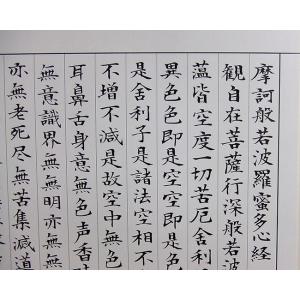 摩訶般若波羅蜜多心経
観自在菩薩行深般若波
蘊皆空度一切苦厄舎利
異色色即是空空即是色
是舎利子是諸法空相不
不増不減是故空中無色
耳鼻舌身意無色声香味
無意識界無無明亦無
亦無老死尽無苦集滅道